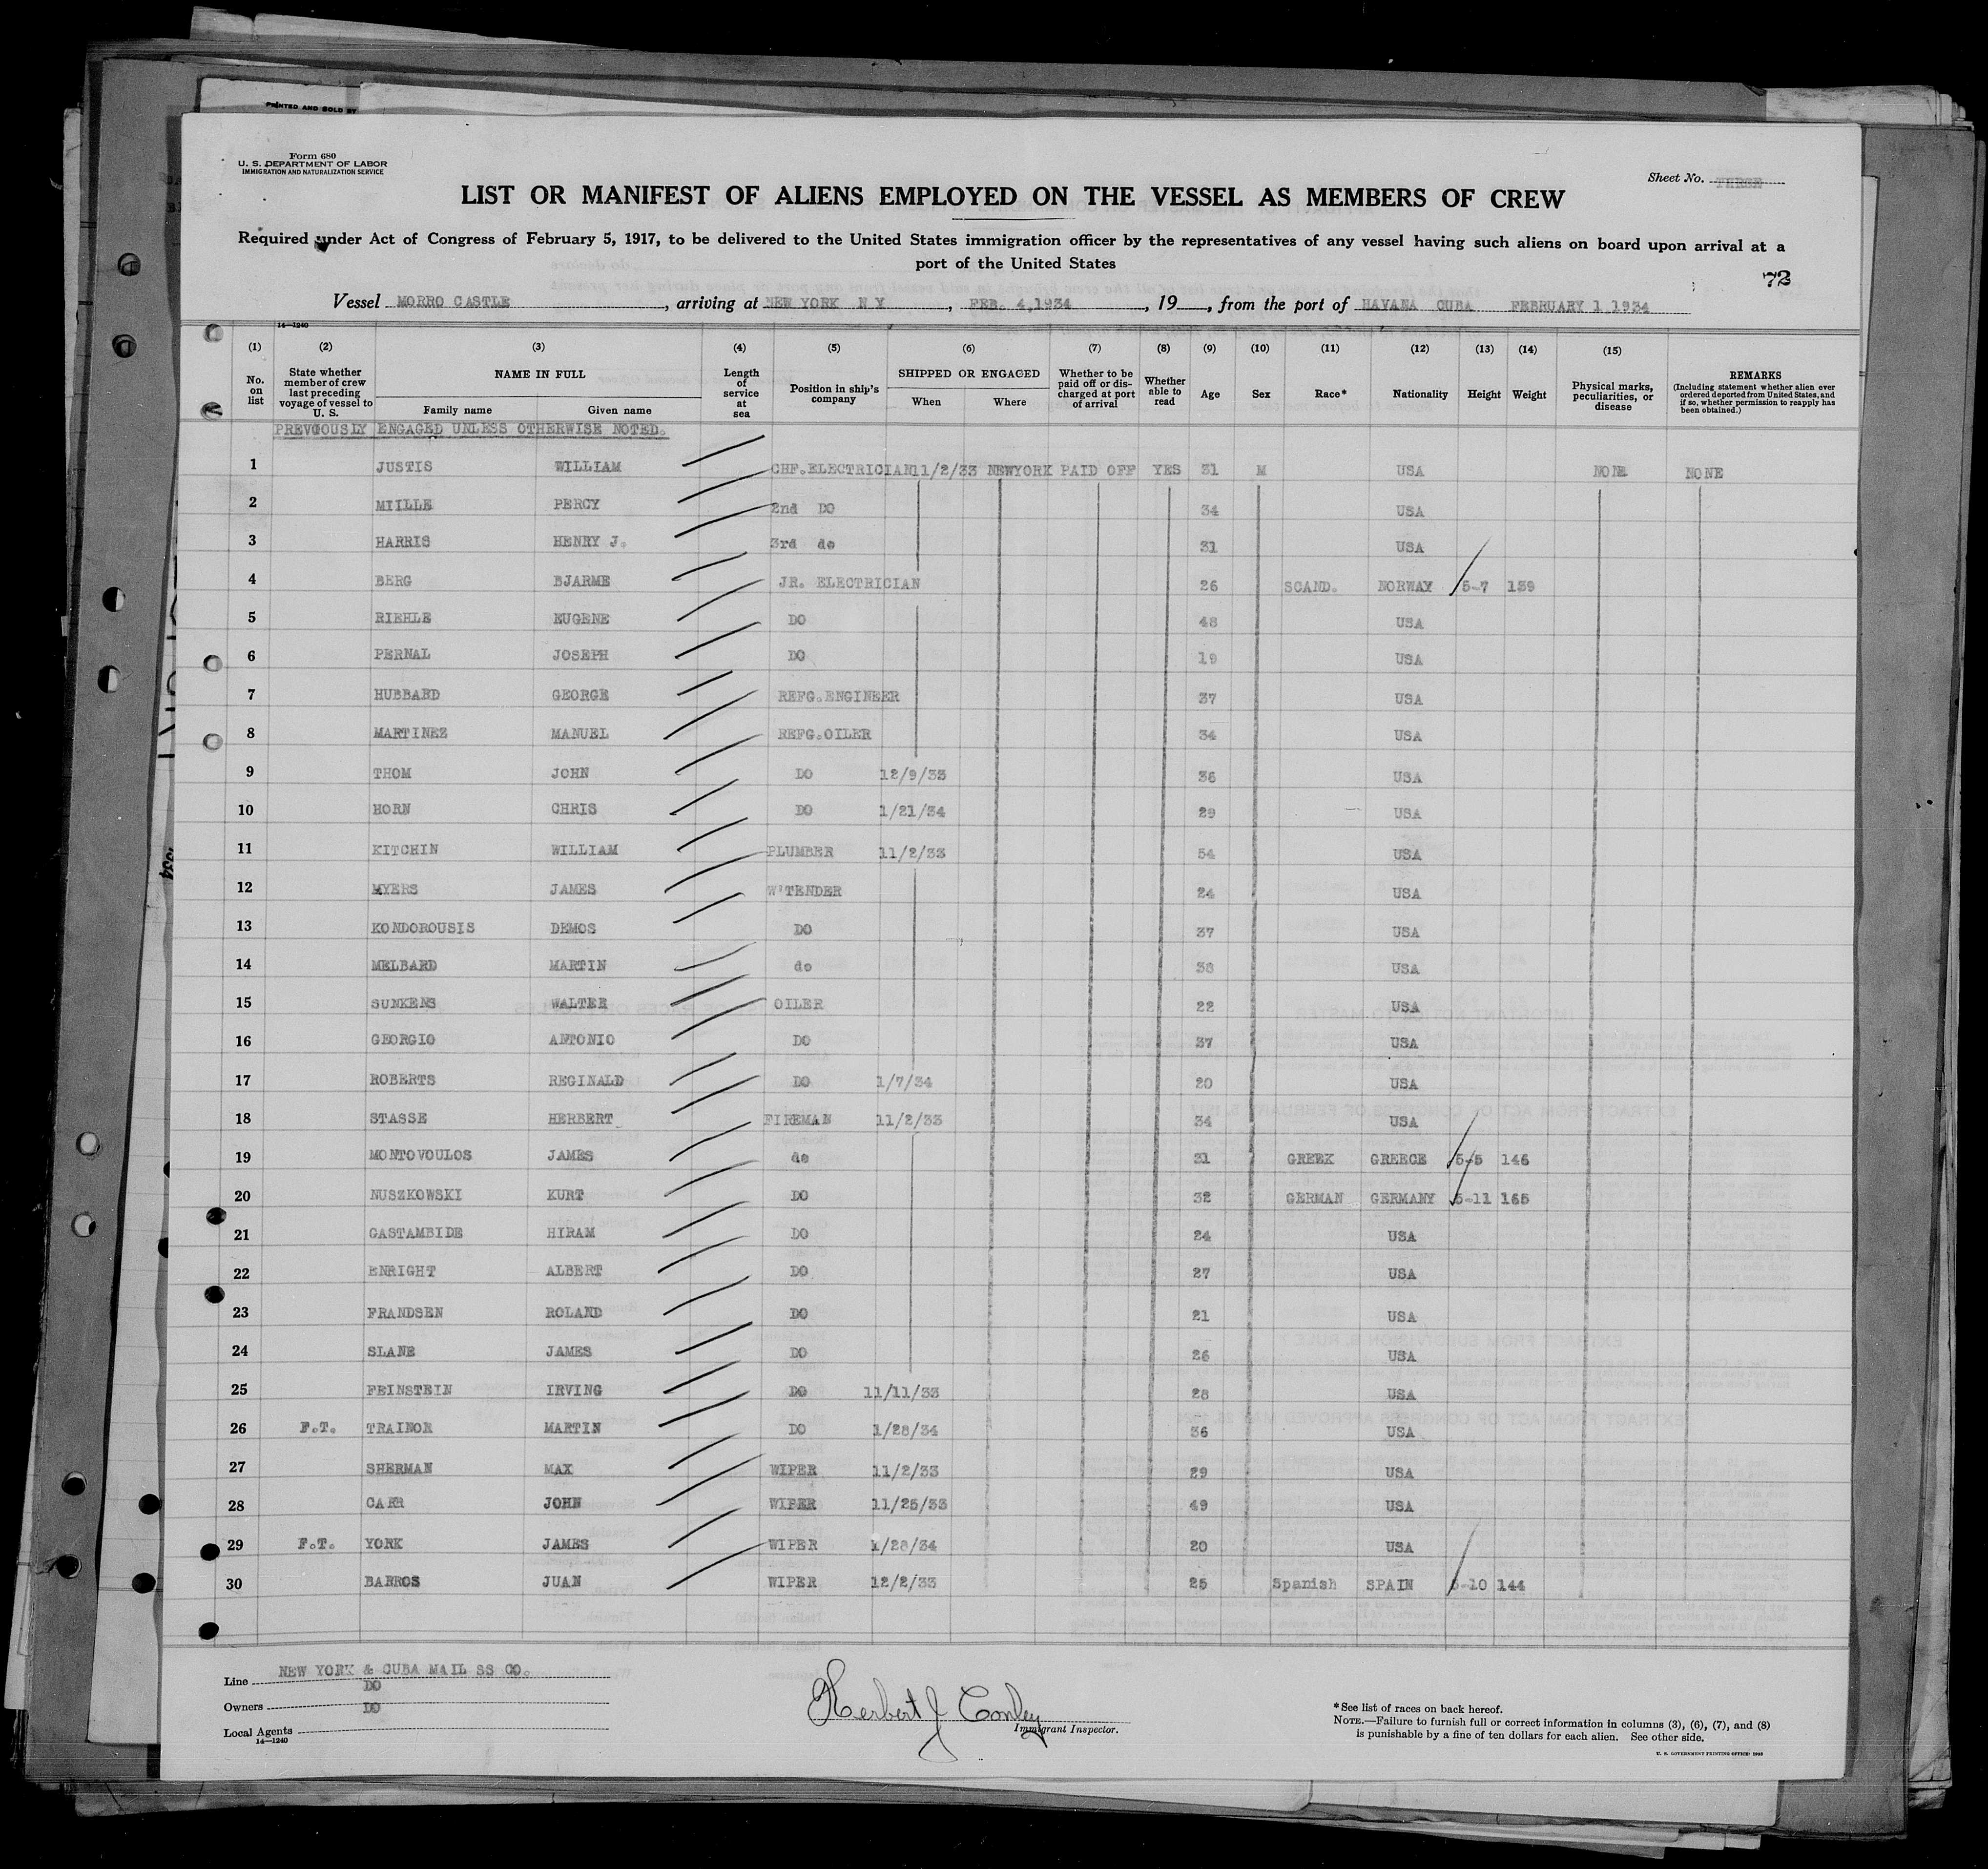 PRINTED AND SOLD BY
Form 680
U. S. DEPARTMENT OF LABOR
IMMIGRATION AND NATURALIZATION SERVICE
Sheet No. THREE
LIST OR MANIFEST OF ALIENS EMPLOYED ON THE VESSEL AS MEMBERS OF CREW
Required under Act of Congress of February 5, 1917, to be delivered to the United States immigration officer by the representatives of any vessel having such aliens on board upon arrival at a
port of the United States
72
Vessel MORRO CASTLE, arriving at NEW YORK N Y, FEB. 4,1934, 19__, from the port of HAVANA CUBA FEBRUARY 1 1934
14—1240
(1) (2) (3) (4) (5) (6) (7) (8) (9) (10) (11) (12) (13) (14) (15)
No. on list State whether member of crew last preceding voyage of vessel to U. S. NAME IN FULL Family name Given name Length of service at sea Position in ship's company SHIPPED OR ENGAGED When Where Whether to be paid off or discharged at port of arrival Whether able to read Age Sex Race* Nationality Height Weight Physical marks, peculiarities, or disease REMARKS (Including statement whether alien ever ordered deported from United States, and if so, whether permission to reapply has been obtained.)
PREVIOUSLY ENGAGED UNLESS OTHERWISE NOTED.
1 JUSTIS WILLIAM CHF.ELECTRICIAN 11/2/33 NEWYORK PAID OFF YES 31 M USA NONE NONE
2 MIILLE PERCY 2nd DO 34 USA
3 HARRIS HENRY J. 3rd do 31 USA
4 BERG BJARME JR. ELECTRICIAN 26 SCAND. NORWAY 5-7 139
5 RIEHLE EUGENE DO 48 USA
6 PERNAL JOSEPH DO 19 USA
7 HUBBARD GEORGE REFG.ENGINEER 37 USA
8 MARTINEZ MANUEL REFG.OILER 34 USA
9 THOM JOHN DO 12/9/33 36 USA
10 HORN CHRIS DO 1/21/34 29 USA
11 KITCHIN WILLIAM PLUMBER 11/2/33 54 USA
12 MYERS JAMES W'TENDER 24 USA
13 KONDOROUSIS DEMOS DO 37 USA
14 MELBARD MARTIN do 38 USA
15 SUNKENS WALTER OILER 22 USA
16 GEORGIO ANTONIO DO 37 USA
17 ROBERTS REGINALD DO 1/7/34 20 USA
18 STASSE HERBERT FIREMAN 11/2/33 34 USA
19 MONTOVOULOS JAMES do 31 GREEK GREECE 5-5 146
20 NUSZKOWSKI KURT DO 32 GERMAN GERMANY 5-11 165
21 GASTAMBIDE HIRAM DO 24 USA
22 ENRIGHT ALBERT DO 27 USA
23 FRANDSEN ROLAND DO 21 USA
24 SLANE JAMES DO 26 USA
25 FEINSTEIN IRVING DO 11/11/33 28 USA
26 F.T. TRAINOR MARTIN DO 1/28/34 36 USA
27 SHERMAN MAX WIPER 11/2/33 29 USA
28 CARR JOHN WIPER 11/25/33 49 USA
29 F.T. YORK JAMES WIPER 1/28/34 20 USA
30 BARROS JUAN WIPER 12/2/33 25 Spanish SPAIN 5-10 144
Line NEW YORK & CUBA MAIL SS CO.
Owners DO
Local Agents DO
14—1240
Herbert J Conley
Immigrant Inspector.
*See list of races on back hereof.
NOTE.—Failure to furnish full or correct information in columns (3), (6), (7), and (8)
is punishable by a fine of ten dollars for each alien. See other side.
U. S. GOVERNMENT PRINTING OFFICE: 1933